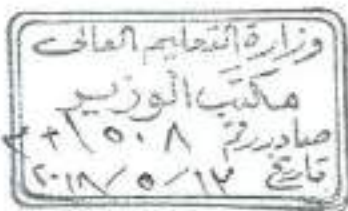 وزارة التعليم العالى
مكتب الوزير
صادر رقم
تاريخ ٢٠١٨/٥/١٣